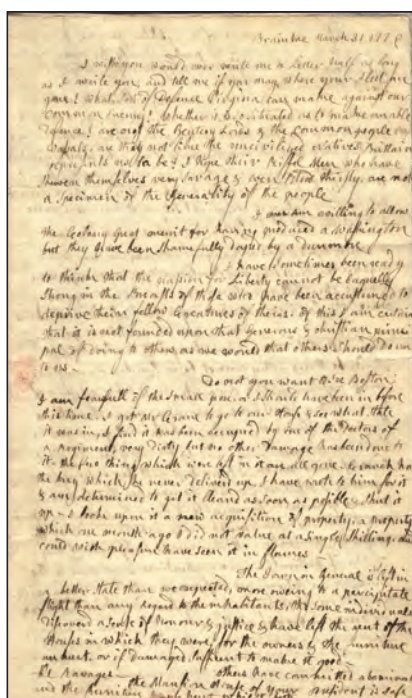 Braintree March 31 1776
I wish you would ever write me a Letter half as long
as I write you; and tell me if you may where your Fleet are
gone? What sort of Defence Virginia can make against our
common Enemy? Whether it is so situated as to make an able
Defence? are not the Gentery Lords & the common people
vassals, are they not like the uncivilized Natives Brittain
represents us to be? I hope their Riffel Men who have
shewen themselves very savage & even Blood thirsty, are not
a specimen of the Generality of the people
I am willing to allow
the Colony great merrit for having produced a Washington
but they have been shamefully duped by a Dunmore
I have sometimes been ready
to think that the passion for Liberty cannot be Eaquelly
strong in the Breasts of those who have been accustomed to
deprive their fellow Creatures of theirs. of this I am certain
that it is not founded upon that Generous & christian princi
pal of doing to others as we would that others should do un
to us
Do not you want to see Boston
I am fearfull of the small pox or I should have been in before
this time. I got Mr Crane to go to our House & see what state
it was in, I find it has been occupied by one of the Doctors of
a Regiment, very dirty but no other Damage has been done to
it. the few things which were left in it are all gone.
the key which he never deliverd up. I have wrote to him for it
& am determined to get it cleand as soon as possible & shut it
up - I look upon it a new acquisition of property, a property
which one month ago I did not value at a single shilling, &
could with pleasure have seen it in flames
The Town in General is left in
a better state than we expected, more oweing to a percipitate
flight than any Regard to the inhabitants, tho some individuals
discoverd a sense of Honour & justice & have left the rent of the
Houses in which they were, for the owners & the furniture
unhurt, or if damaged sufficent to make it good -
others have committed abominable
Ravages. the Mansion House of your President is safe
and the furniture unhurt